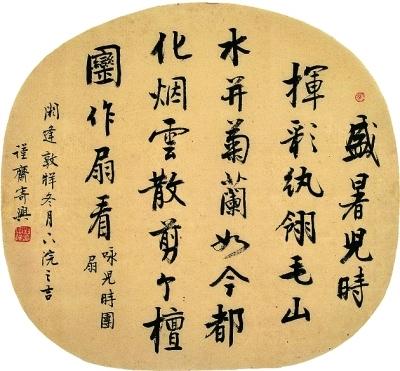 盛暑児時
揮彩紈翎毛山
水并菊蘭如今都
化烟雲散剪个檀
圞作扇看
咏児時團
扇
阏逢敦牂冬月下浣之吉
謹齋寄興